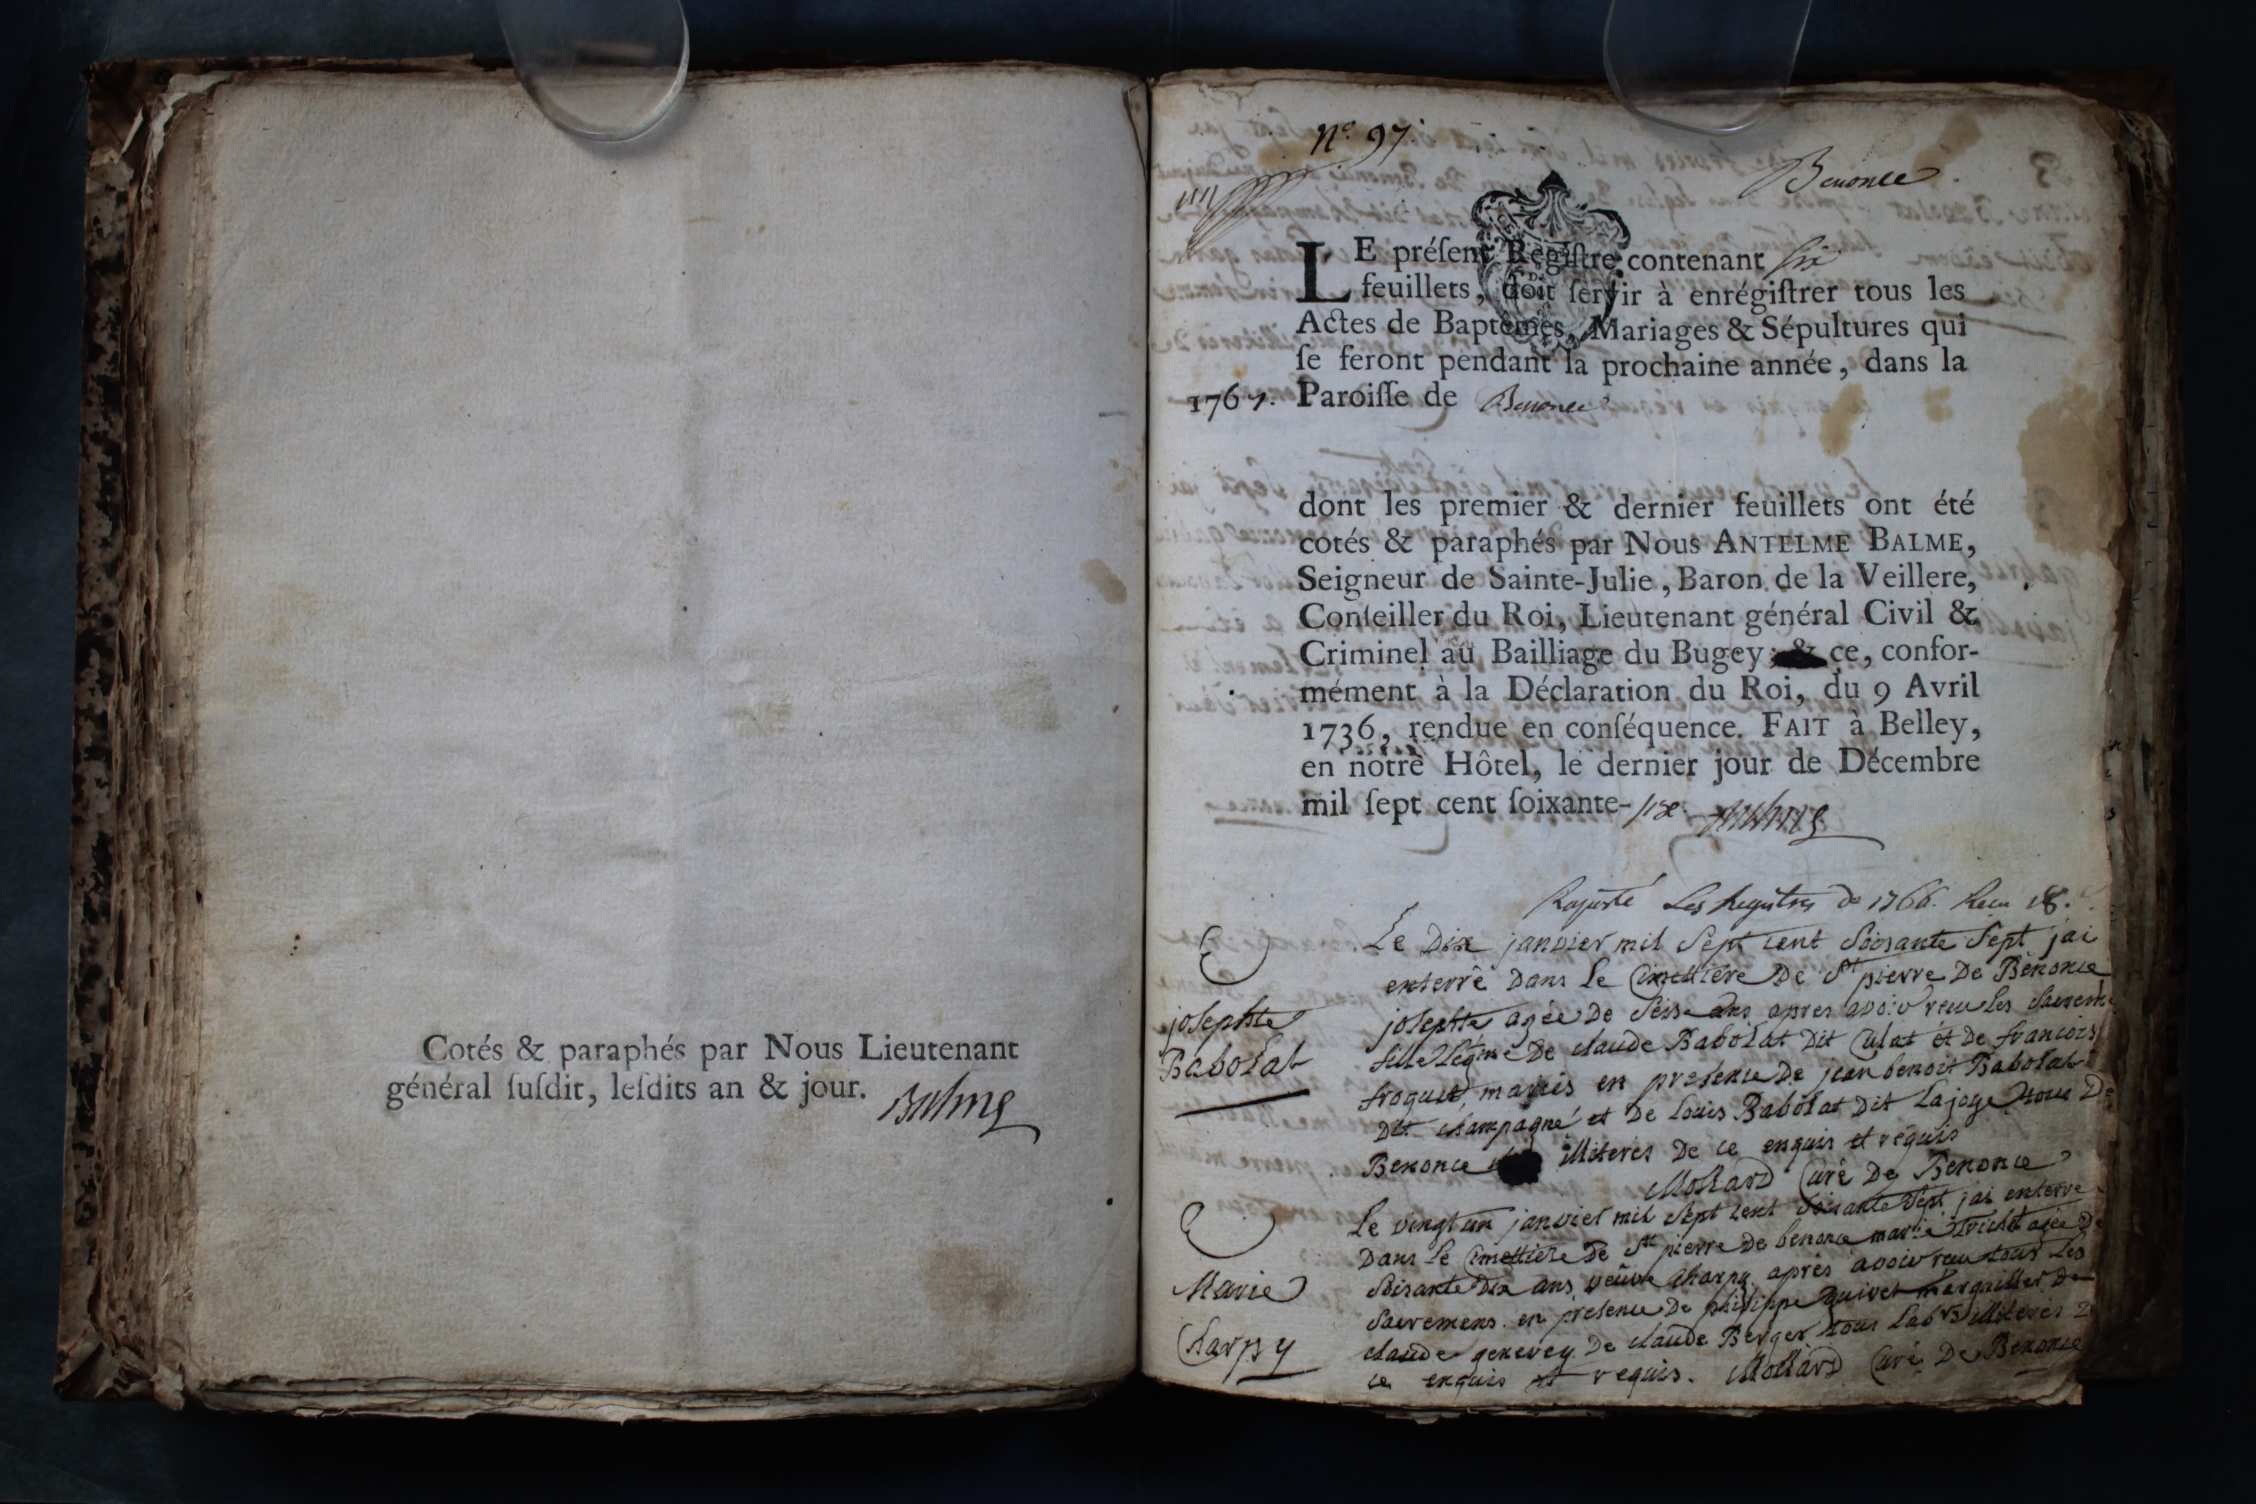 Cotés & paraphés par Nous Lieutenant
général ſuſdit, leſdits an & jour. Balme
n.º 97.
Benonce
LE préſent Régiſtre contenant six
feuillets, doit ſervir à enrégiſtrer tous les
Actes de Baptêmes, Mariages & Sépultures qui
ſe feront pendant la prochaine année, dans la
1767. Paroiſſe de Benonce
dont les premier & dernier feuillets ont été
cotés & paraphés par Nous ANTELME BALME,
Seigneur de Sainte-Julie, Baron de la Veillere,
Conſeiller du Roi, Lieutenant général Civil &
Criminel au Bailliage du Bugey; & ce, confor-
mément à la Déclaration du Roi, du 9 Avril
1736, rendue en conſéquence. FAIT à Belley,
en notre Hôtel, le dernier jour de Décembre
mil ſept cent ſoixante-six. Balme
Raporté Les Registres de 1766. Receu 18.
Le Dix janvier mil Sept cent Soisante Sept jai
enterré Dans Le Cimettiere De St pierre De Benonce
josephte agée De Seise ans apres avoir reçu les Sacrem
josephte
Babolat
fille legme De claude Babolat Dit Culat et de francois
froquet, mariés en presence De jean benoit Babolat
Dit champagne et De Louis Babolat Dit Lajoye tous De
Benonce illiteres De ce enquis et requis
Mollard Curé De Benonce
Le vingt un janvier mil Sept cent Soisante Sept jai enterré
Dans Le Cimettiere De St pierre de benonce marie trichet agée De
Soisante Dix ans veuve Charpy après avoir reçu tous Les
Marie
Charpy
Sacremens en presence De philippe quivet marguiller De
claude genevey De claude Berger tous Labrs illiterés D
ce enquis et requis. Mollard Curé De Benonce